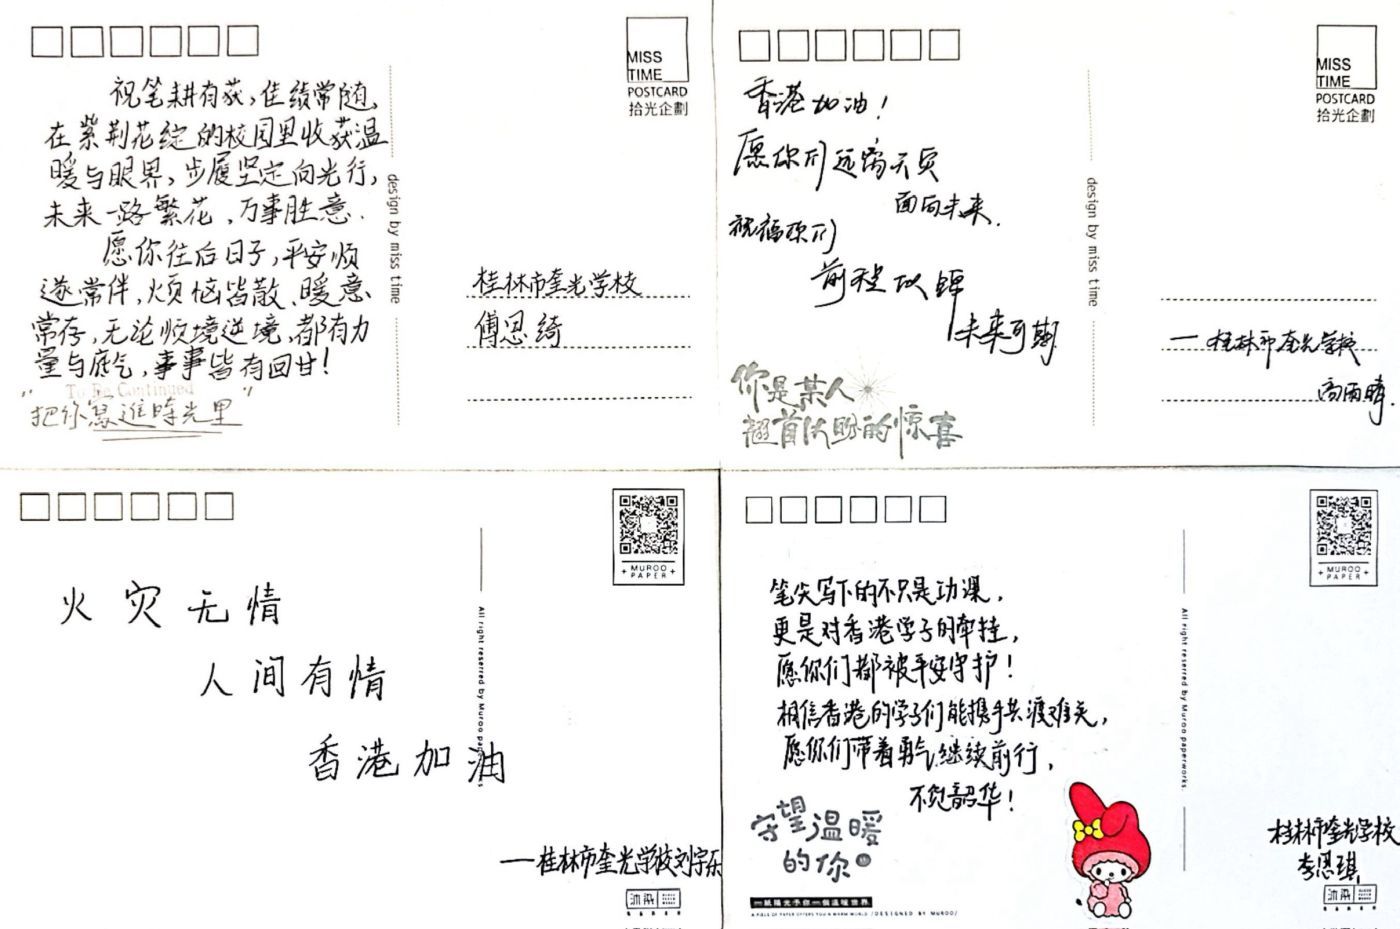 MISS
TIME
POSTCARD
拾光企劃
祝笔耕有获,佳绩常随,
在紫荆花绽的校园里收获温
暖与眼界,步履坚定向光行,
未来一路繁花,万事胜意.
愿你往后日子,平安顺
遂常伴,烦恼皆散、暖意
常存,无论顺境逆境,都有力
量与底气,事事皆有回甘!
To Be Continued
"把你寫進時光里"
design by miss time
桂林市奎光学校
傅思绮
MISS
TIME
POSTCARD
拾光企劃
香港加油!
愿你们远离天灾
面向未来.
祝福你们
前程似锦
未来可期
你是某人
翘首以盼的惊喜
design by miss time
一桂林市奎光学校
高雨晴.
MUROO
PAPER
火灾无情
人间有情
香港加油
All right reserred by Muroo paperworks.
——桂林市奎光学校刘宇乐
沐染
MUROO
PAPER
笔尖写下的不只是功课,
更是对香港学子的牵挂,
愿你们都被平安守护!
相信香港的学子们能携手共渡难关,
愿你们带着勇气继续前行,
不负韶华!
守望温暖
的你
一紙陽光予你一個溫暖世界
A PIECE OF PAPER OFFERS YOU A WARM WORLD /DESIGNED BY MUROO/
All right reserred by Muroo paperworks.
桂林市奎光学校
李思琪
沐染